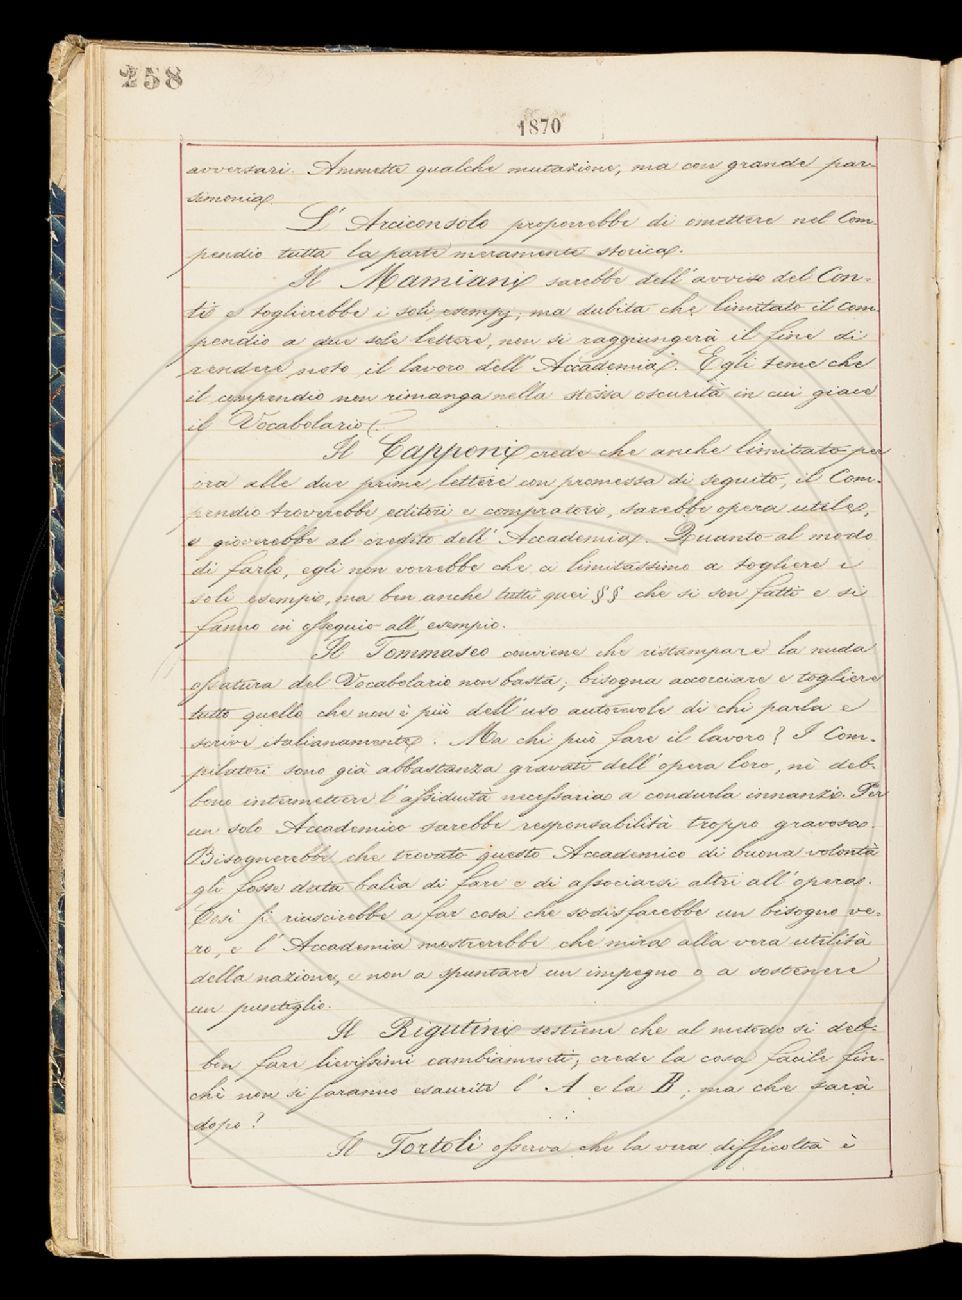 258
1870
avversari. Ammette qualche mutazione, ma con grande par-
simonia.
L' Arciconsolo proporrebbe di omettere nel Com-
pendio tutta la parte meramente storica.
Il Mamiani sarebbe dell' avviso del Con-
ti e toglierebbe i soli esempj; ma dubita che limitato il com-
pendio a due sole lettere, non si raggiungerà il fine di
rendere noto il lavoro dell' Accademia. Egli teme che
il compendio non rimanga nella stessa oscurità in cui giace
il Vocabolario.
Il Capponi crede che anche limitato per
ora alle due prime lettere con promessa di seguito, il Com-
pendio troverebbe editori e compratori, sarebbe opera utile,
e gioverebbe al credito dell' Accademia. Quanto al modo
di farlo, egli non vorrebbe che ci limitassimo a togliere i
soli esempi, ma ben anche tutti quei §§ che si son fatti e si
fanno in ossequio all' esempio.
Il Tommaseo conviene che ristampare la nuda
ossatura del Vocabolario non basta; bisogna accorciare e togliere
tutto quello che non è più dell' uso autorevole di chi parla e
scrive italianamente. Ma chi può fare il lavoro? I Com-
pilatori sono già abbastanza gravati dell' opera loro, nè deb-
bono intermettere l' assiduità necessaria a condurla innanzi. Per
un solo Accademico sarebbe responsabilità troppo gravosa.
Bisognerebbe che trovato questo Accademico di buona volontà
gli fosse data balìa di fare e di associarsi altri all' opera.
Così si riuscirebbe a far cosa che sodisfarebbe un bisogno ve-
ro, e l' Accademia mostrerebbe che mira alla vera utilità
della nazione, e non a spuntare un impegno o a sostenere
un puntiglio.
Il Rigutini sostiene che al metodo si deb-
ben fare lievissimi cambiamenti; crede la cosa facile fin-
chè non si saranno esaurite l' A e la B; ma che sarà
dopo?
Il Tortoli osserva che la vera difficoltà è